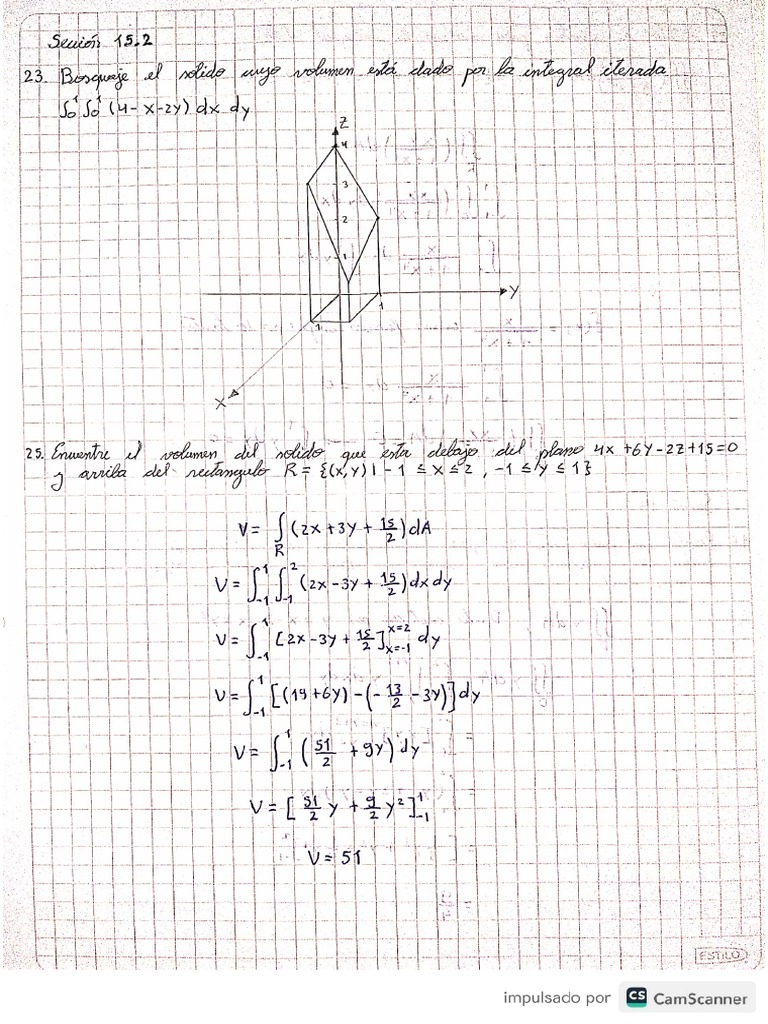 Sección 15.2
23. Bosqueje el solido cuyo volumen está dado por la integral iterada
∫₀¹ ∫₀¹ (4 - x - 2y) dx dy
Z
4
3
2
1
Y
1
1
X
25. Encuentre el volumen del solido que esta debajo del plano 4x + 6y - 2z + 15 = 0
y arriba del rectangulo R = {(x,y) | - 1 ≤ x ≤ 2 , -1 ≤ y ≤ 1}
V = ∫_R (2x + 3y + 15/2) dA
V = ∫_{-1}^{1} ∫_{-1}^{2} (2x - 3y + 15/2) dx dy
V = ∫_{-1}^{1} [2x - 3y + 15/2]_{x=-1}^{x=2} dy
V = ∫_{-1}^{1} [(19 + 6y) - (- 13/2 - 3y)] dy
V = ∫_{-1}^{1} (51/2 + 9y) dy
V = [51/2 y + 9/2 y²]_{-1}^{1}
V = 51
ESTILO
impulsado por CS CamScanner